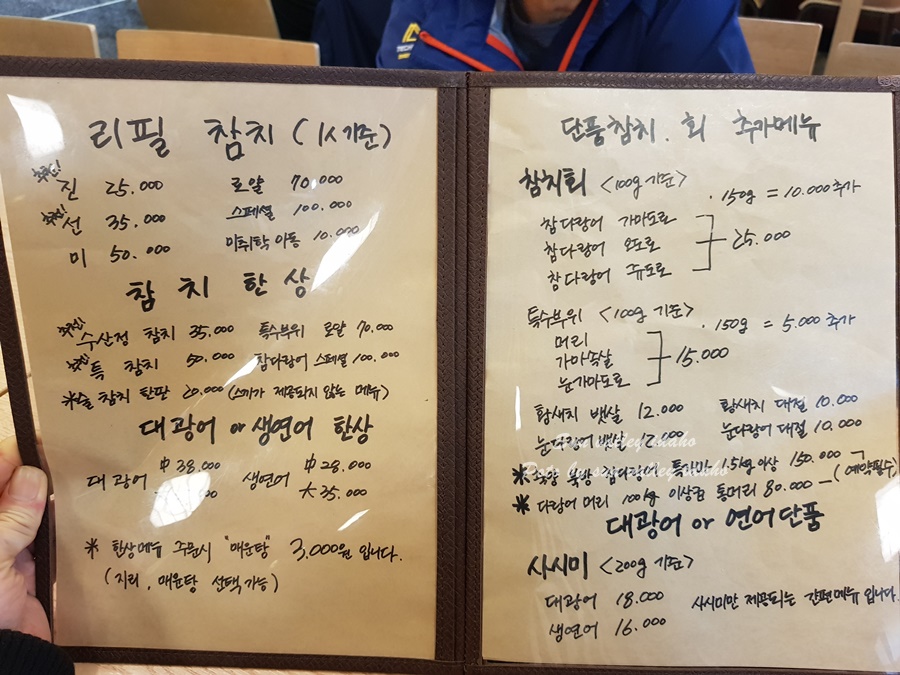 TECH
리필 참치 (1人기준)
추천! 진 25.000 로얄 70.000
추천! 선 35.000 스페셜 100.000
미 50.000 미취학 아동 10.000
참 치 한 상
추천! 수산정 참치 35.000 특수부위 로얄 70.000
추천! 특 참치 50.000 참다랑어 스페셜 100.000
*술 참치 한판 20.000 (스끼가 제공되지 않는 메뉴)
대광어 or 생연어 한상
대광어 中 38.000 생연어 中 28.000
大 35.000
* 한상메뉴 주문시 "매운탕" 3,000원 입니다.
(지리, 매운탕 선택가능)
단품참치.회 추가메뉴
참치회 <100g 기준> · 150g = 10.000 추가
참다랑어 가마도로
참다랑어 오도로 25.000
참다랑어 쥬도로
특수부위 <100g 기준> · 150g = 5.000 추가
머리
가마속살 15.000
눈가마도로
황새치 뱃살 12.000 황새치 대절 10.000
눈다랑어 뱃살 눈다랑어 대절 10.000
* 참다랑어 특가마 1.5kg 이상 150.000
(예약필수)
* 다랑어 머리 100kg 이상급 통머리 80.000
대광어 or 연어단품
사시미 <200g 기준>
대광어 18.000 사시미만 제공되는 간편메뉴 입니다.
생연어 16.000